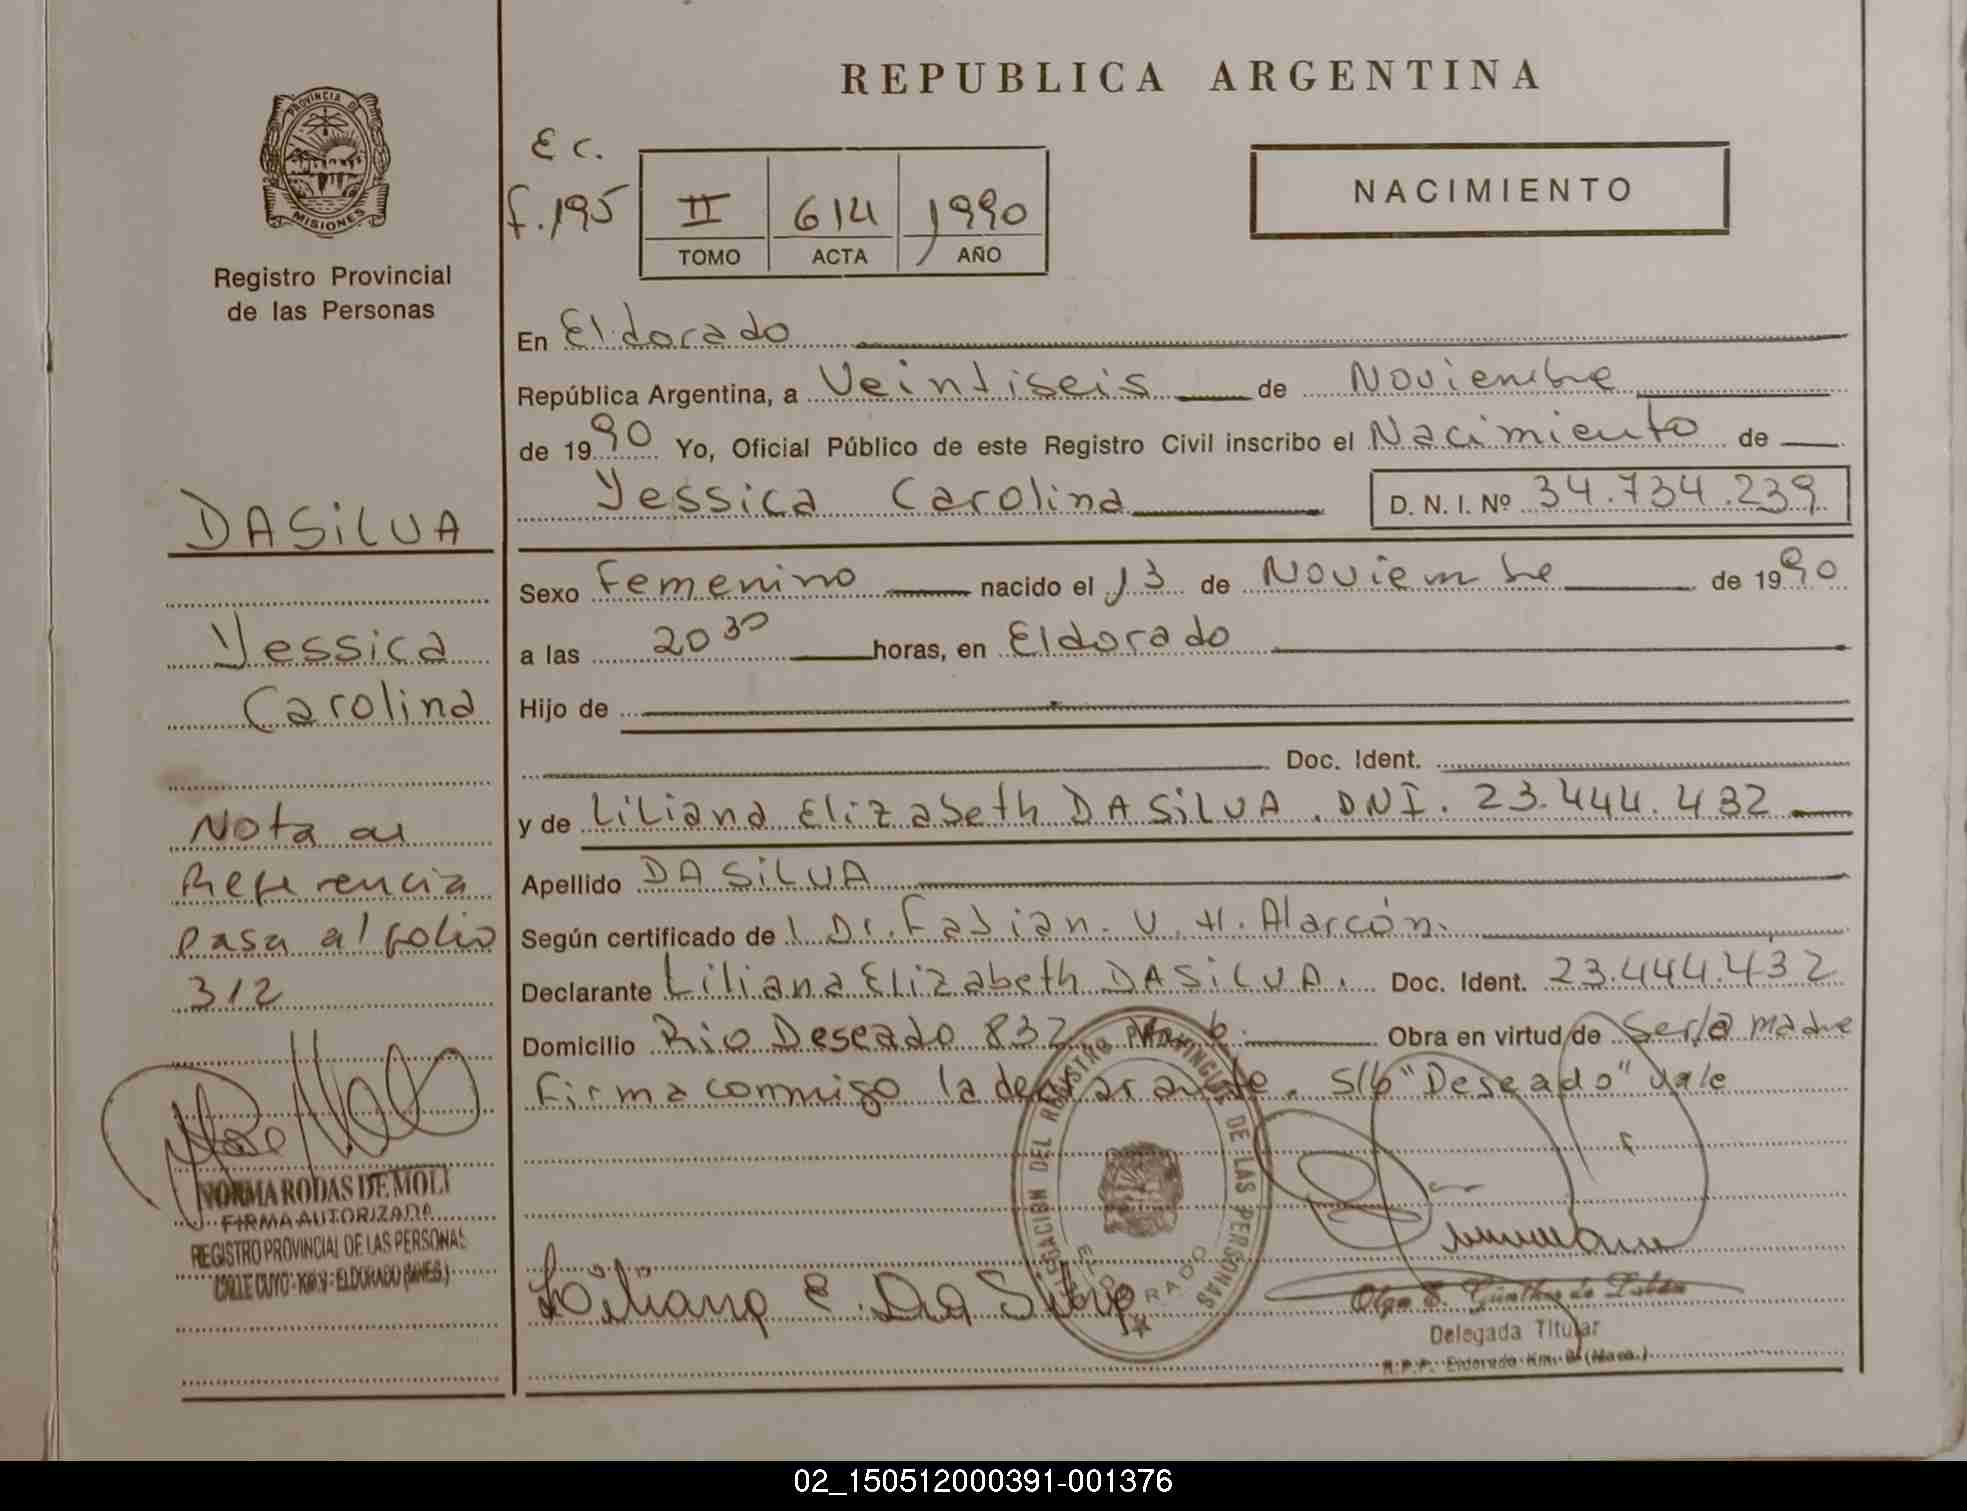 REPUBLICA ARGENTINA
PROVINCIA DE
MISIONES
Registro Provincial
de las Personas
E C.
f. 195
II 614 1990
TOMO ACTA AÑO
NACIMIENTO
En Eldorado
República Argentina, a Veintiseis de Noviembre
de 1990 Yo, Oficial Público de este Registro Civil inscribo el Nacimiento de
Yessica Carolina D. N. I. Nº 34.734.239
DASiLVA
Yessica
Carolina
Nota de
Referencia
pasa al folio
312
Sexo Femenino nacido el 13 de Noviembre de 1990
a las 20 30 horas, en Eldorado
Hijo de
Doc. Ident.
y de Liliana Elizabeth DASiLVA. DNI. 23.444.432
Apellido DASiLVA
Según certificado de l Dr. Fabian. V. H. Alarcón.
Declarante Liliana Elizabeth DASiLVA. Doc. Ident. 23.444.432
Domicilio Rio Deseado 832 Obra en virtud de Ser la madre
Firma conmigo la declarante. S/b "Deseado" Vale
NORMA RODAS DE MOLI
FIRMA AUTORIZADA
REGISTRO PROVINCIAL DE LAS PERSONAS
CALLE CUYO - KM. 9 - ELDORADO (MNES.)
DELEGACION DEL REGISTRO PROVINCIAL DE LAS PERSONAS
ELDORADO
Liliana E. Da Silva
Olga E. Günther de
Delegada Titular
R.P.P. Eldorado Km. 9 (Mnes.)
02_150512000391-001376